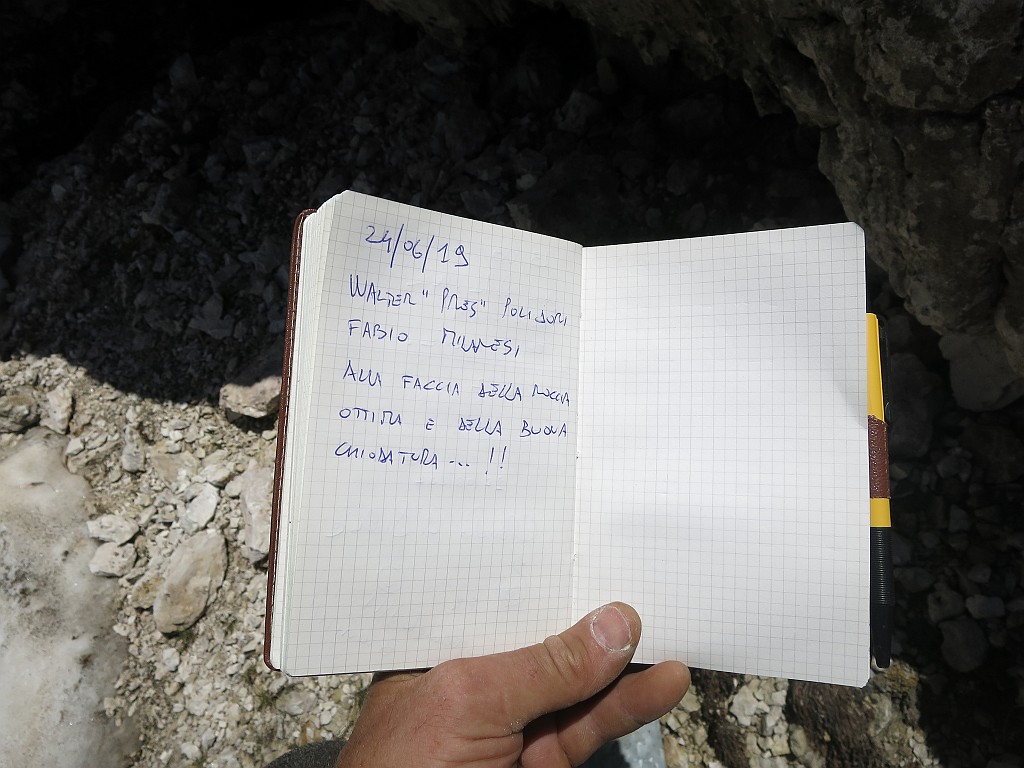 24/06/19
WALTER "PRES" POLIDORI
FABIO MILANESI
ALLA FACCIA DELLA ROCCIA
OTTIMA E DELLA BUONA
CHIODATURA... !!